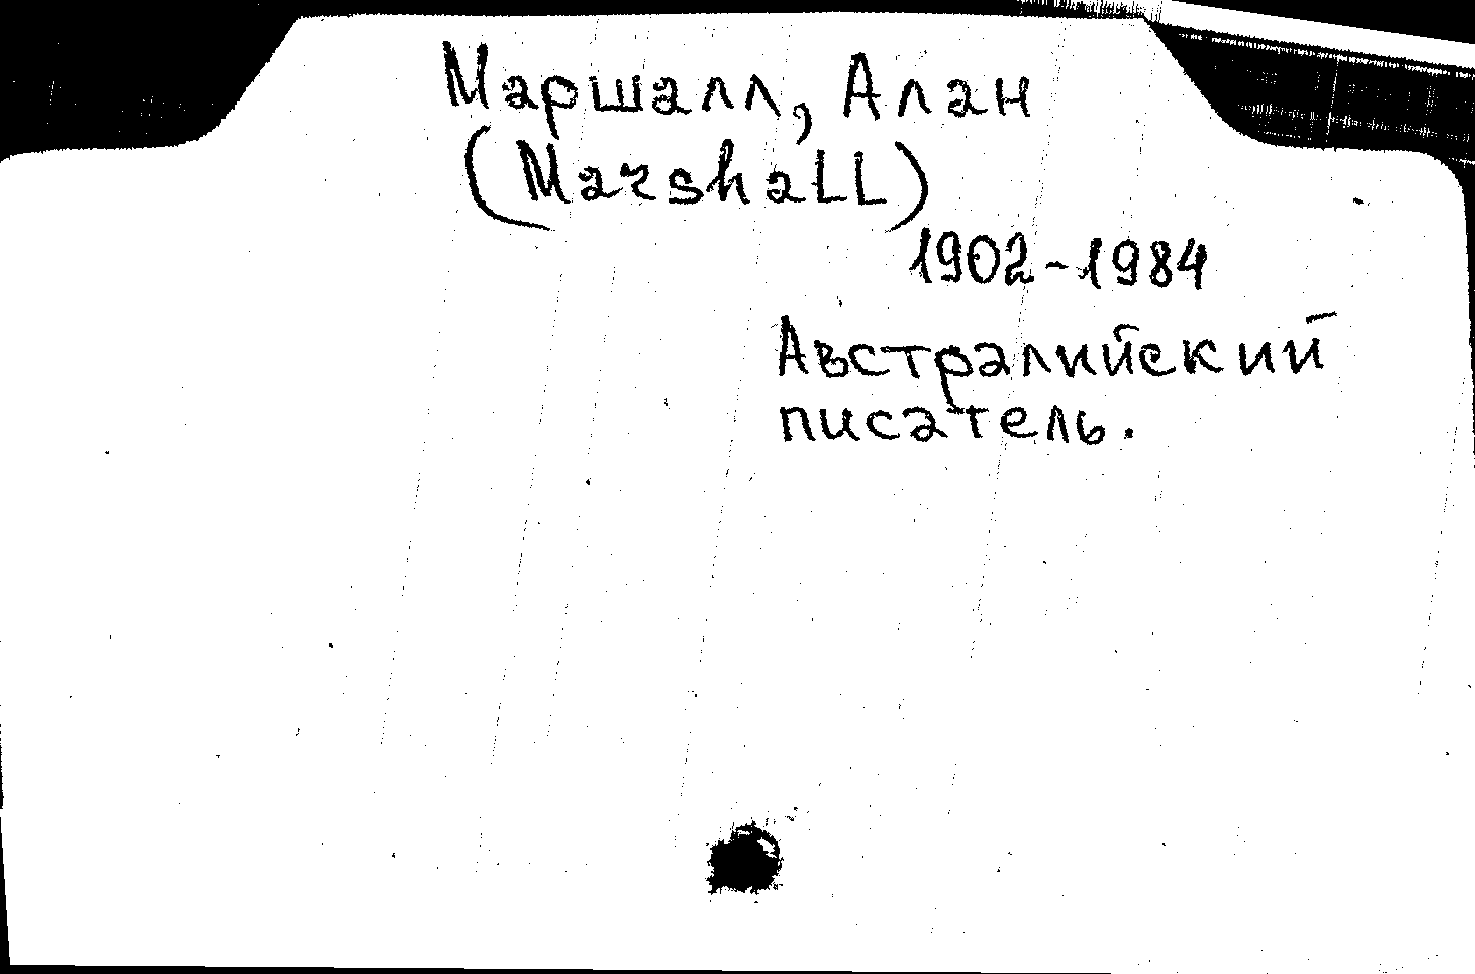 Маршалл, Алан
(Marshall)
1902-1984
Австралийский
писатель.